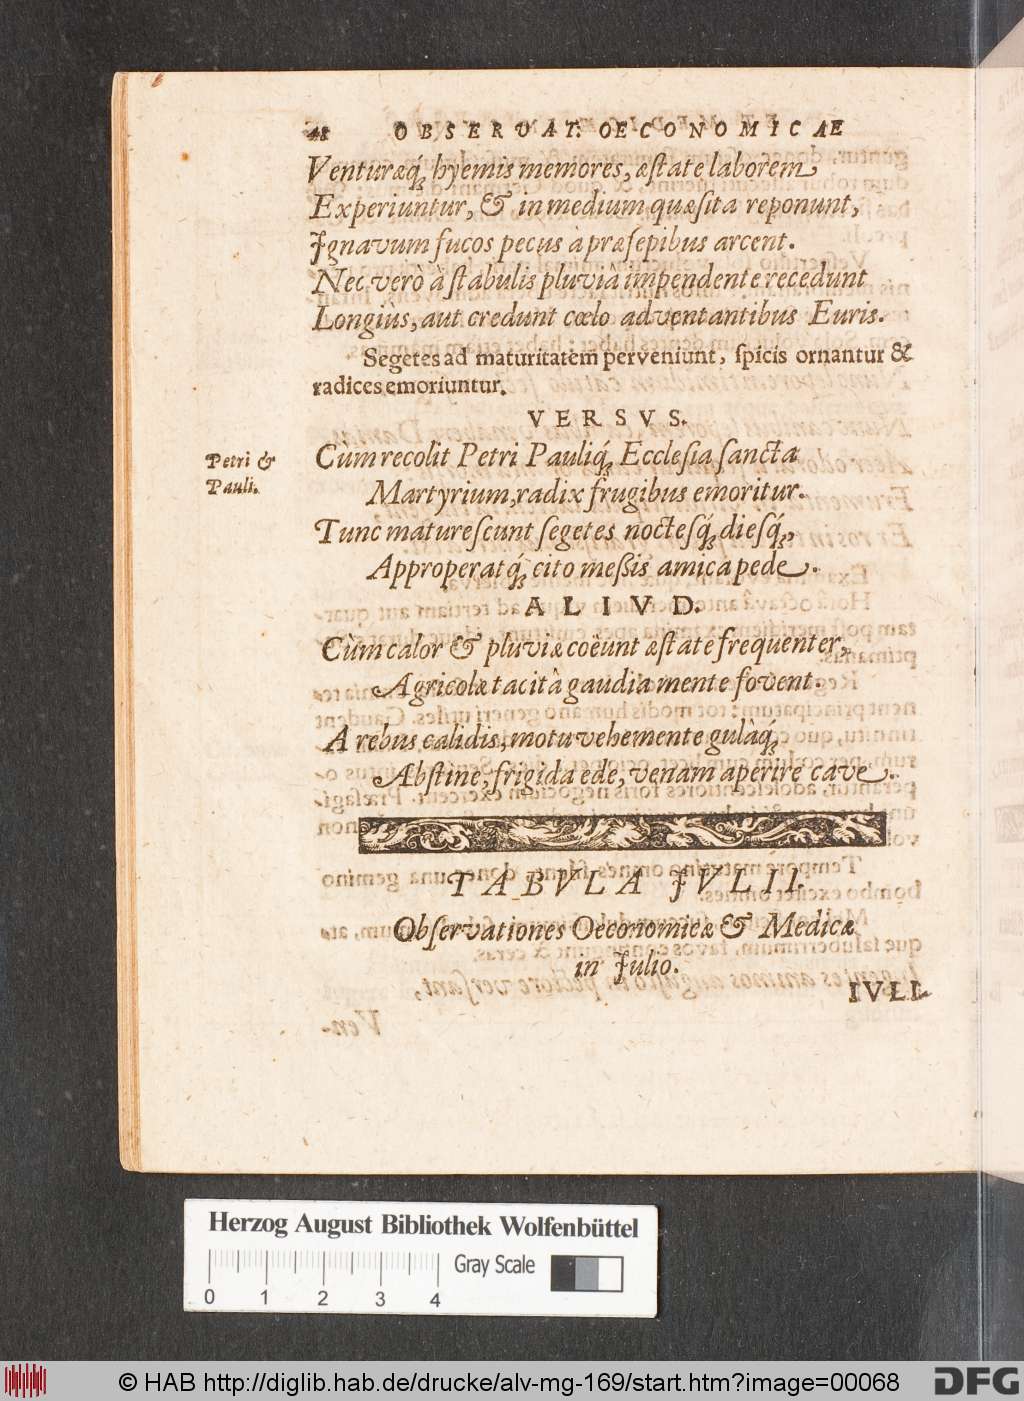 48 OBSERVAT. OECONOMICAE
Venturæq́; hyemis memores, æſtate laborem
Experiuntur, & in medium quæſita reponunt,
Ignavum fucos pecus à præſepibus arcent.
Nec verò à ſtabulis pluviâ impendente recedunt
Longius, aut credunt cœlo adventantibus Euris.
Segetes ad maturitatem perveniunt, ſpicis ornantur &
radices emoriuntur.
VERSVS.
Petri &
Pauli.
Cum recolit Petri Pauliq́; Eccleſia ſancta
Martyrium, radix frugibus emoritur.
Tunc matureſcunt ſegetes nocteſq́; dieſq́;,
Approperatq́; cito meßis amica pede.
ALIVD.
Cùm calor & pluviæ coëunt æſtate frequenter,
Agricolæ tacitâ gaudia mente fovent.
A rebus calidis, motu vehemente gulàq́;
Abſtine, frigida ede, venam aperire cave.
TABVLA JVLII.
Obſervationes Oeconomicæ & Medicæ
in Julio.
IVLI-
Herzog August Bibliothek Wolfenbüttel
Gray Scale
0 1 2 3 4
© HAB http://diglib.hab.de/drucke/alv-mg-169/start.htm?image=00068
DFG